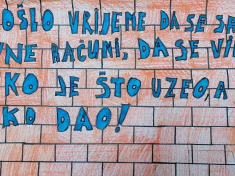 OŠLO VRIJEME DA SE S
VNE RAČUNI, DA SE VI
KO JE ŠTO UZEO, A
KO DAO!